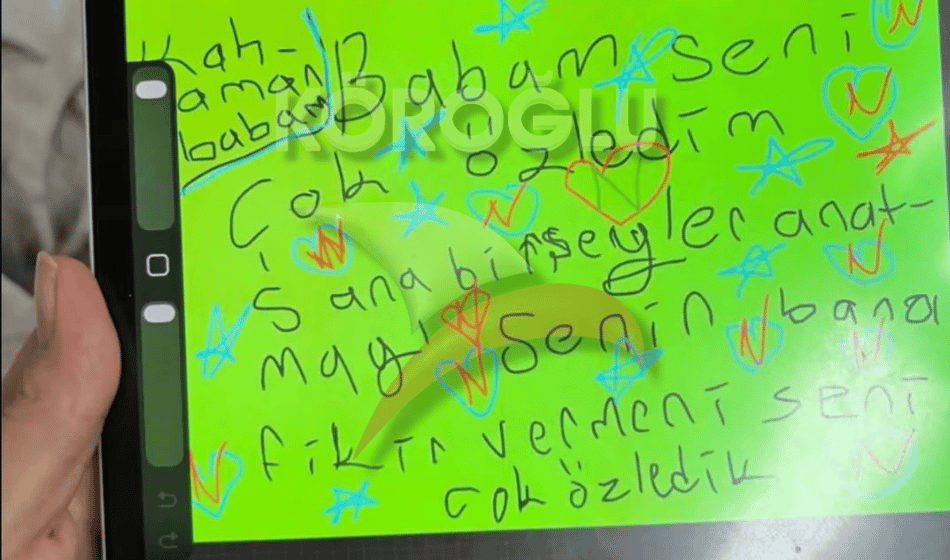 Kah-
raman
babam
Babam seni
Çok özledim
Sana birşeyler anat-
mayı Senin bana
fikir vermeni seni
çok özledik
KÖROĞLU